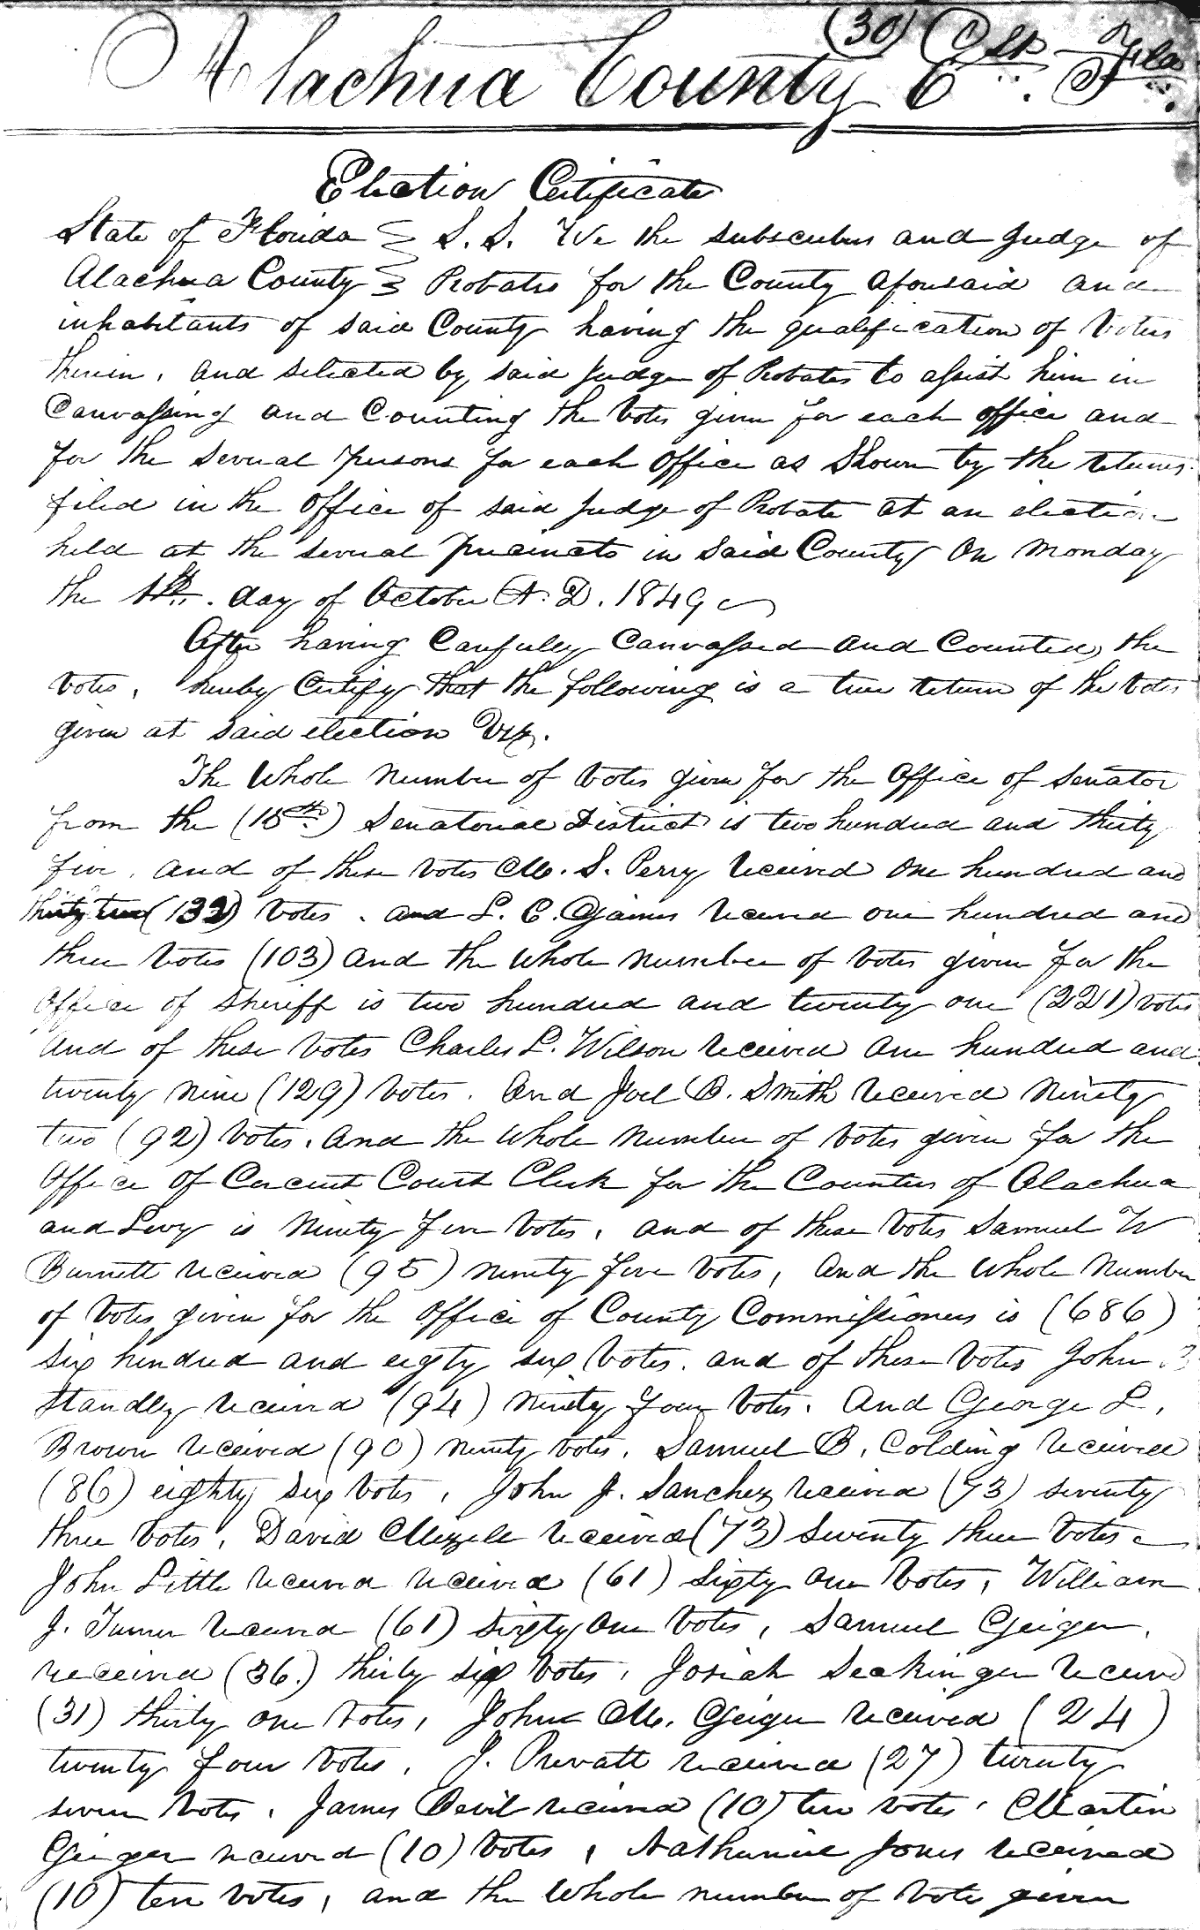 (30)
Alachua County E. F. Fla
Election Certificate
State of Florida } S. S. We the subscribers and Judge of
Alachua County } Probates for the County aforesaid and
inhabitants of said County having the qualification of Voters
therein, and selected by said Judge of Probates to assist him in
Canvassing and Counting the Votes given for each office and
for the several persons for each office as Shown by the returns
filed in the office of said Judge of Probate at an election
held at the several precincts in said County On Monday
the 1st. day of October A. D. 1849
After having Carefully Canvassed and Counted, the
Votes, hereby Certify that the following is a true return of the Votes
given at said election Viz.
The Whole Number of Votes given for the Office of Senator
from the (15th.) Senatorial District is two hundred and thirty
five, and of these votes M. S. Perry received One hundred and
thirty two (132) Votes. and L. C. Gaines received one hundred and
three Votes (103) and the whole number of votes given for the
office of Sheriff is two hundred and twenty one (221) votes
and of these Votes Charles L. Wilson received One hundred and
twenty nine (129) votes. And Joel B. Smith received Ninety
two (92) Votes. and the whole number of votes given for the
Office Of Circuit Court Clerk for the Counties of Alachua
and Levy is Ninety five Votes, and of these Votes Samuel W
Burnett received (95) ninety five Votes, And the whole Number
of Votes given for the office of County Commissioners is (686)
Six hundred and eigty six Votes. and of these Votes John
Standley received (94) Ninety four Votes. And George L.
Brown received (90) ninety votes. Samuel B. Colding received
(86) eighty six Votes, John J. Sanchez received (73) seventy
three Votes, David Mizell received (73) Seventy three Votes
John Little received received (61) sixty one Votes, William
J. Turner received (61) sixty one Votes, Samuel Geiger,
received (36.) thirty six Votes, Josiah Seckinger receive
(31) thirty one Votes, John M. Geiger received (24)
twenty four Votes, J. Prevatt received (27) twenty
seven Votes, James Devil received (10) ten votes, Martin
Geiger received (10) Votes, Nathaniel Jones received
(10) ten votes, and the whole number of Votes given